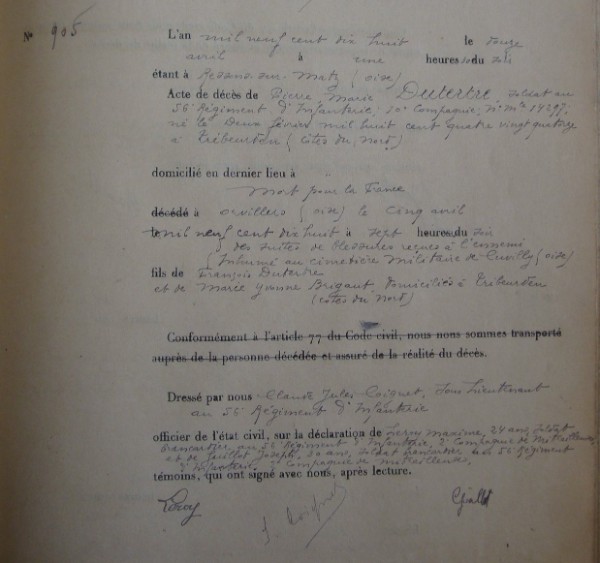 N° 905
L'an mil neuf cent dix huit le douze
avril à une heures du soir
étant à Ressons-sur-Matz (oise)
Acte de décès de Pierre Marie Dutertre, soldat au
56e Régiment d'Infanterie, 10e Compagnie, N° Mle 14297,
né le Deux février mil huit cent quatre vingt quatorze
à Trébeurden (côtes du Nord)
domicilié en dernier lieu à
Mort pour la France
décédé à orvillers (oise) le cinq avril
mil neuf cent dix huit à sept heures du soir
des suites de blessures reçues à l'ennemi
Inhumé au cimetière militaire de Cuvilly (oise)
fils de François Dutertre
et de Marie Yvonne Brigant, domiciliés à Trébeurden
(côtes du Nord)
Conformément à l'article 77 du Code civil, nous nous sommes transporté
auprès de la personne décédée et assuré de la réalité du décès.
Dressé par nous Claude Jules Coignet, Sous Lieutenant
au 56e Régiment d'Infanterie
officier de l'état civil, sur la déclaration de Leroy Maxime, 24 ans, soldat
brancardier au 56e Régiment d'Infanterie, 2e Compagnie de Mitrailleuses,
et de Juillet Joseph, ans, soldat brancardier au 56e Régiment
d'Infanterie, 2e Compagnie de mitrailleuses,
témoins, qui ont signé avec nous, après lecture.
Leroy J. Coignet Juillet